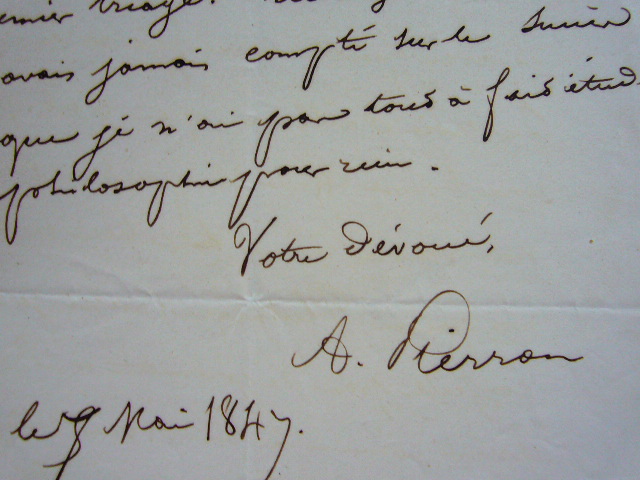 avais jamais compté sur le succès
que je n'ai pas tout à fait étud
philosophie pour rien.
Votre dévoué,
A. Pierron
le 8 Mai 1847.